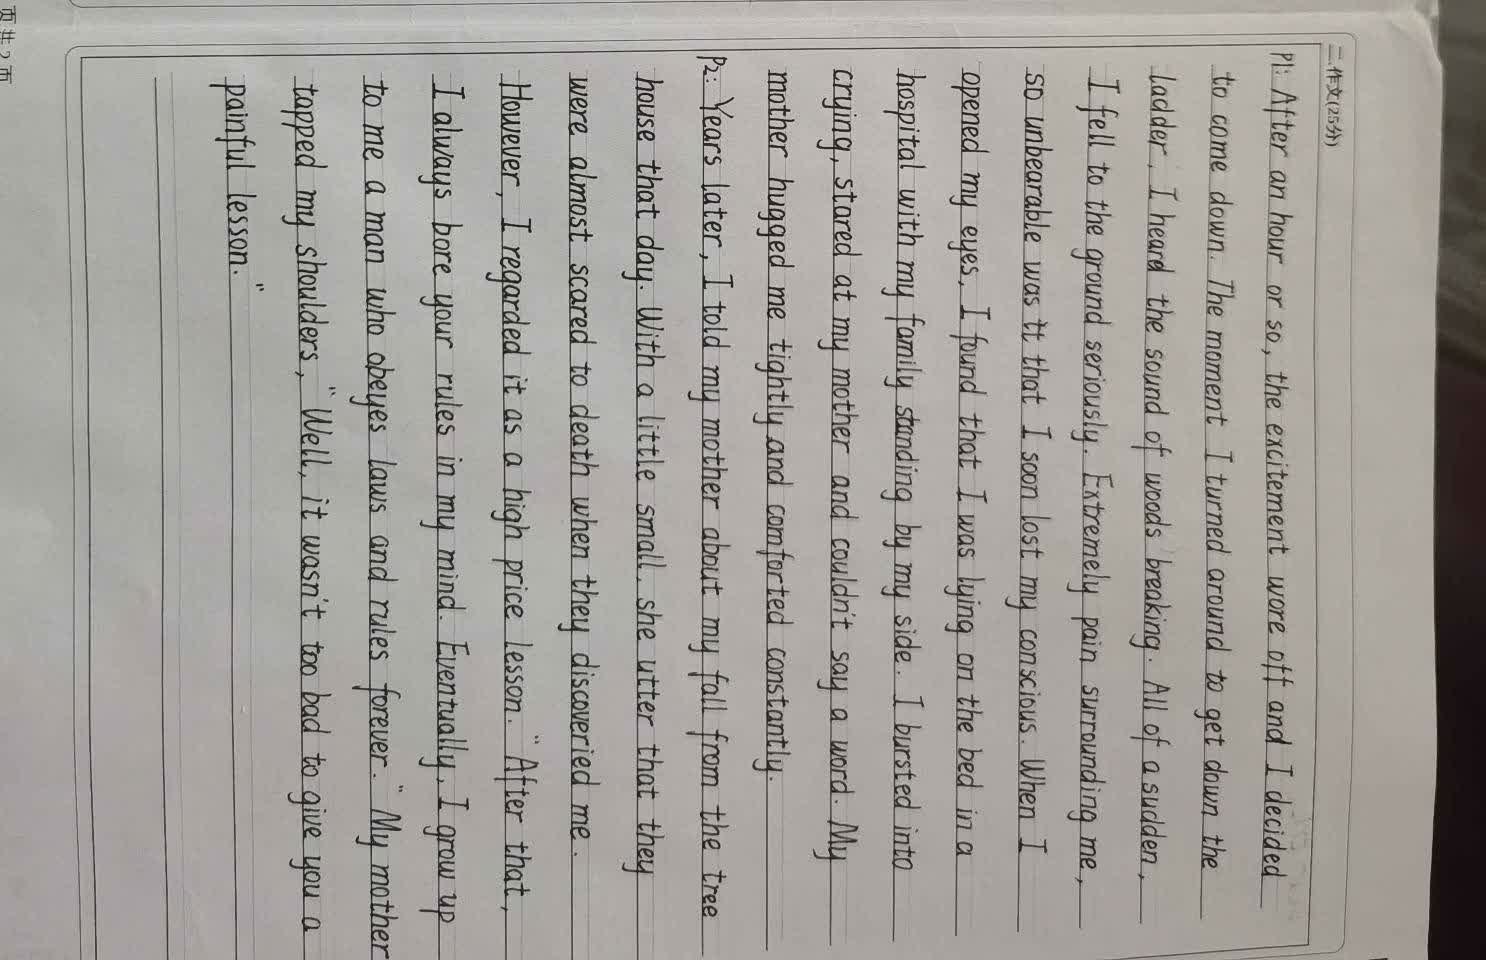 二.作文(25分)
P1: After an hour or so, the excitement wore off and I decided
to come down. The moment I turned around to get down the
ladder, I heard the sound of woods breaking. All of a sudden,
I fell to the ground seriously. Extremely pain surrounding me,
so unbearable was it that I soon lost my conscious. When I
opened my eyes, I found that I was lying on the bed in a
hospital with my family standing by my side. I bursted into
crying, stared at my mother and couldn't say a word. My
mother hugged me tightly and comforted constantly.
P2: Years later, I told my mother about my fall from the tree
house that day. With a little small, she utter that they
were almost scared to death when they discoveried me.
However, I regarded it as a high price lesson. "After that,
I always bore your rules in my mind. Eventually, I grow up
to me a man who obeyes laws and rules forever." My mother
tapped my shoulders, "Well, it wasn't too bad to give you a
painful lesson."
页共2页